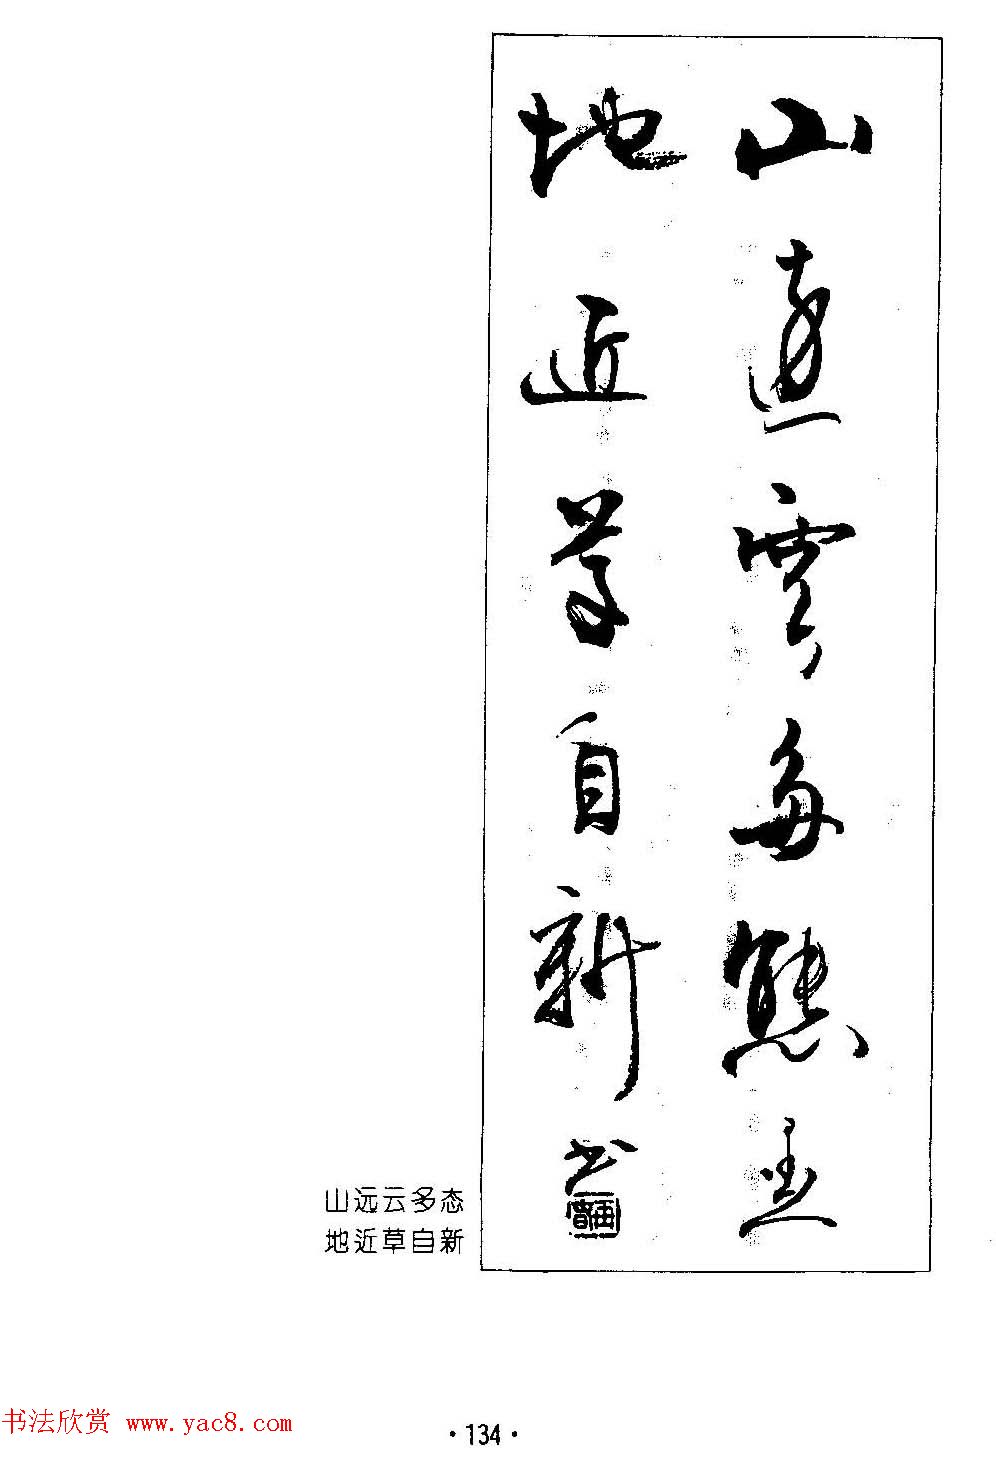 山遠雲多態
地近草自新书
山远云多态
地近草自新
书法欣赏 www.yac8.com
·134·